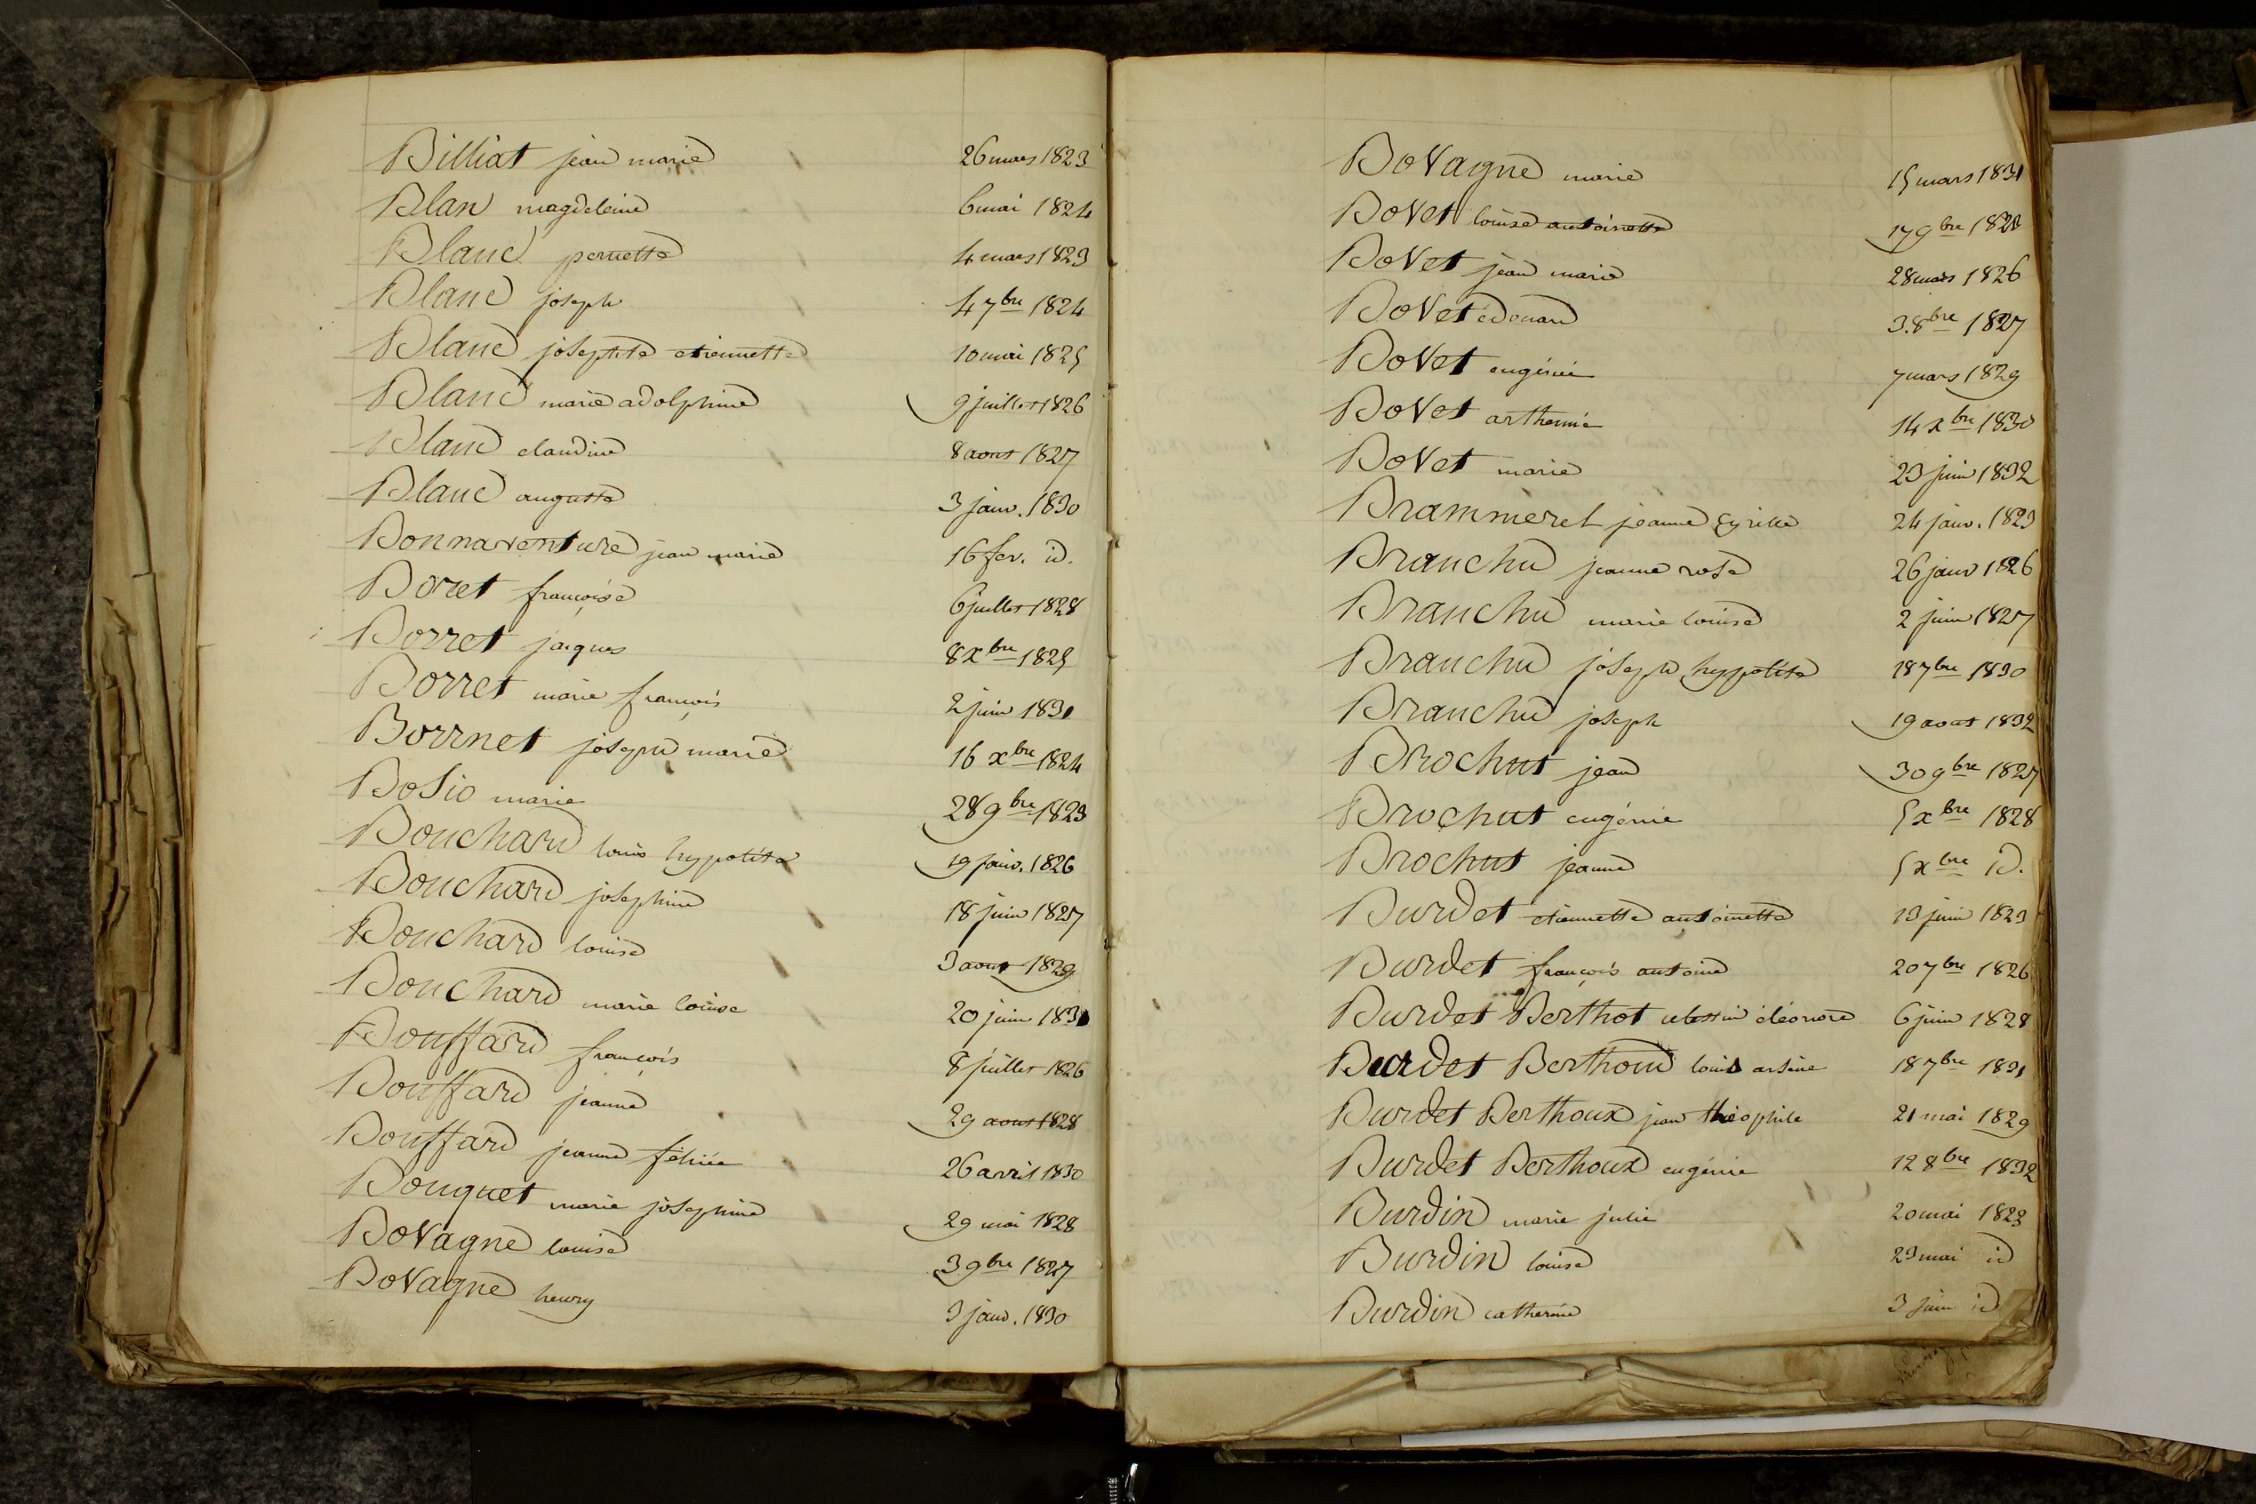 Billiat jean marie 26 mars 1823
Blan magdeleine 6 mai 1824
Blanc pernette 4 mars 1823
Blanc joseph 4 7bre 1824
Blanc josephte etiennette 10 mai 1825
Blanc marie adolphine 9 juillet 1826
Blanc claudine 8 aout 1827
Blanc auguste 3 janv. 1830
Bonnaventure jean marie 16 fev. id.
Boret françoise 6 juillet 1828
Borret jacques 8 xbre 1825
Borret marie françois 2 juin 1831
Borrnet joseph marie 16 xbre 1824
Bosio marie 28 9bre 1823
Bouchard louis hyppolite 19 janv. 1826
Bouchard josephine 18 juin 1827
Bouchard louise 3 aout 1829
Bouchard marie louise 20 juin 1831
Bouffard françois 8 juillet 1826
Bouffard jeanne 29 aout 1828
Bouffard jeanne félicie 26 avril 1830
Bouquet marie josephine 29 mai 1828
BoVagne louise 3 9bre 1827
BoVagne henry 3 janv. 1830
BoVagne marie 15 mars 1831
BoVet louise antoinette 17 9bre 1823
BoVet jean marie 28 mars 1826
BoVet édouard 3. 8bre 1827
BoVet eugénie 7 mars 1829
BoVet arthemie 14 xbre 1830
BoVet marie 23 juin 1832
Brammeret jeanne Cyrille 24 janv. 1823
Branchu jeanne rose 26 janv 1826
Branchu marie louise 2 juin 1827
Branchu joseph hyppolite 18 7bre 1830
Branchu joseph 19 aout 1832
Brochut jean 30 9bre 1827
Brochut eugénie 5 xbre 1828
Brochut jeanne 5 xbre id.
Burdet etiennette antoinette 13 juin 1823
Burdet françois antoine 20 7bre 1826
Burdet Berthot celestin éléonore 6 juin 1828
Burdet Berthoud louis arsène 18 7bre 1831
Burdet Berthoux jean théophile 21 mai 1829
Burdet Berthoux eugénie 12 8bre 1832
Burdin marie julie 20 mai 1823
Burdin louise 23 mai id
Burdin catherine 3 juin id